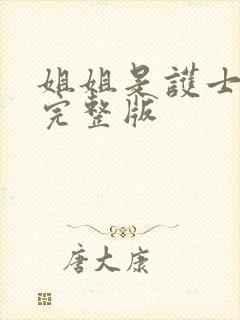 姐姐是護士
完整版
唐大康